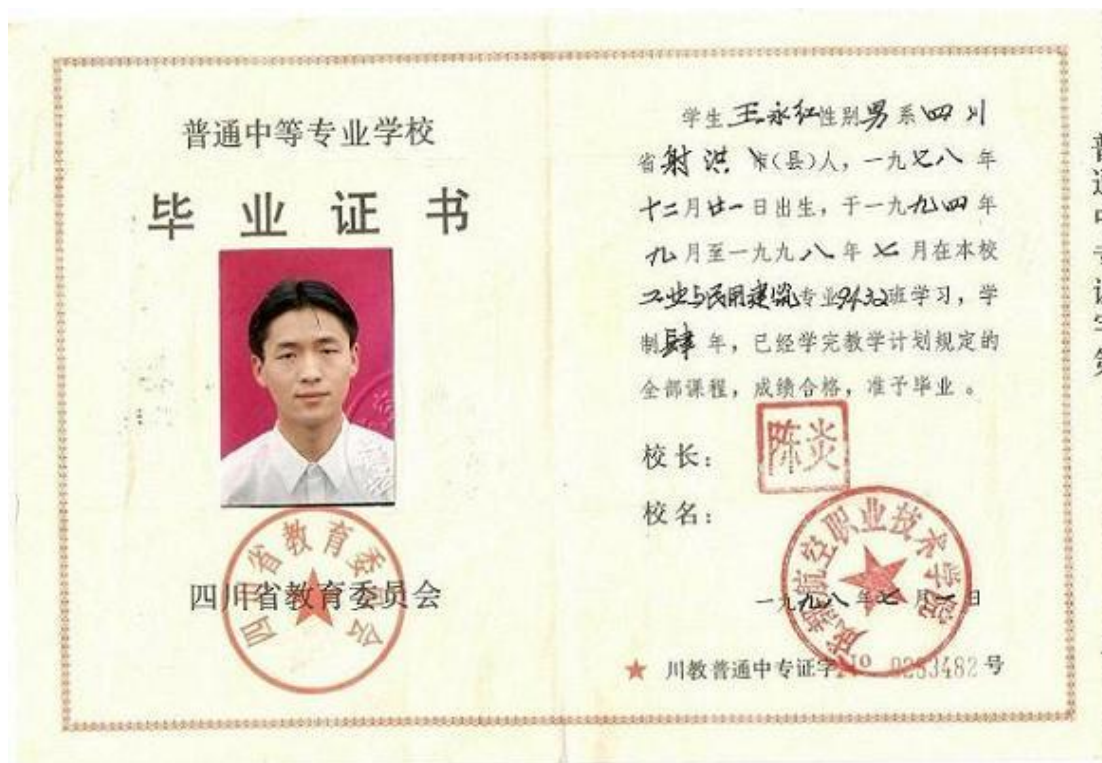 普通中等专业学校
毕业证书
四川省教育委员会
四川省教育委员会
学生王永红性别男系四川
省射洪市(县)人，一九七八年
十二月廿一日出生，于一九九四年
九月至一九九八年七月在本校
工业与民用建筑专业9432班学习，学
制肆年，已经学完教学计划规定的
全部课程，成绩合格，准予毕业。
校长：
陈炎
校名：
成都航空职业技术学院
一九九八年七月一日
★ 川教普通中专证字No 0283482号
普通中专证字第